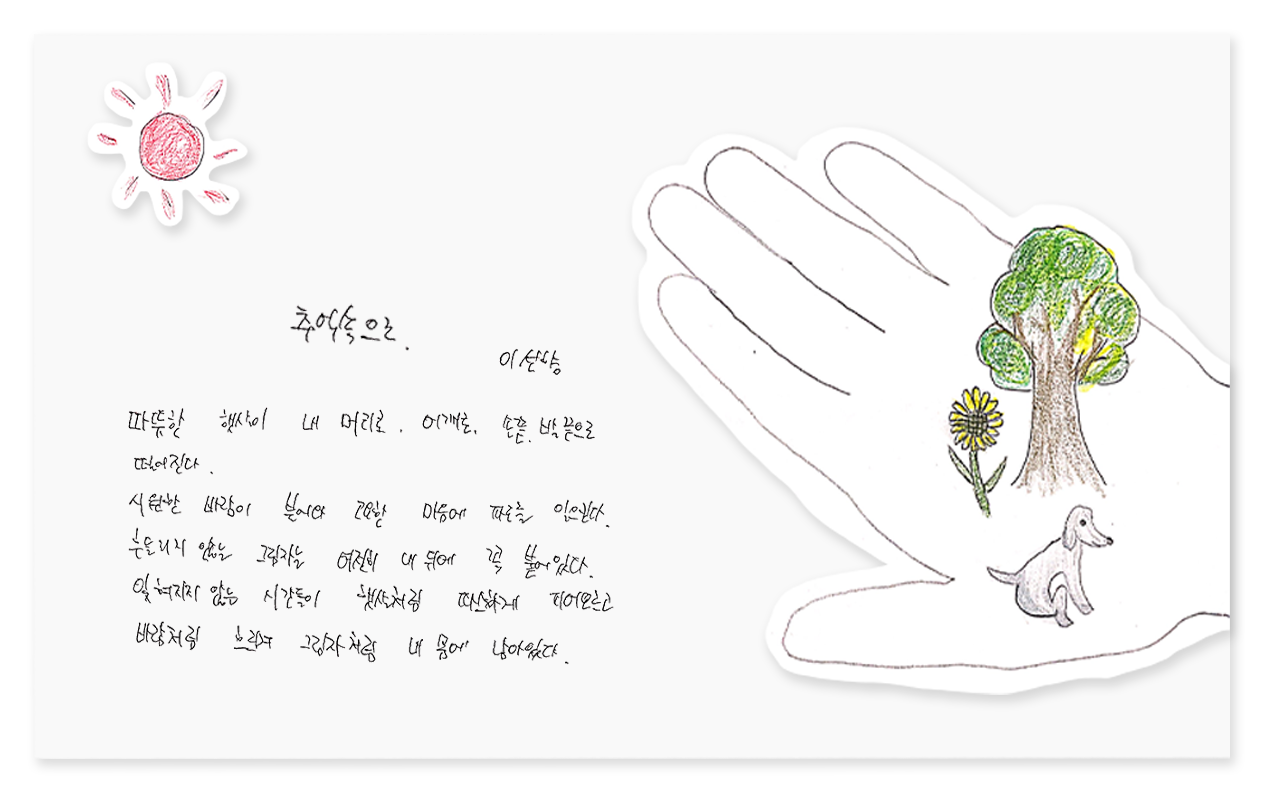 추억속으로.
이선
따뜻한 햇살이 내 머리로, 어깨로, 손끝, 발끝으로
떨어진다.
시원한 바람이 불어와 고요한 마음에 파문을 일으킨다.
흔들리지 않는 그림자는 여전히 내 뒤에 꼭 붙어있다.
잊혀지지 않는 시간들이 햇살처럼 따스하게 피어오르고
바람처럼 흐르며 그림자처럼 내 몸에 남아있다.